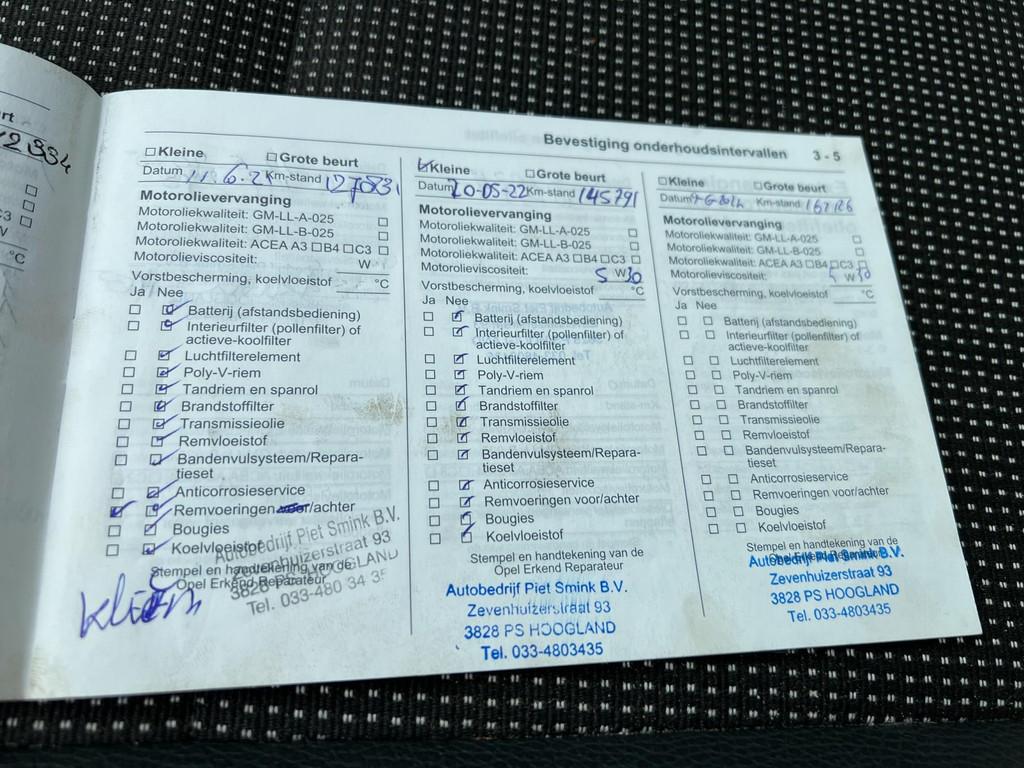 rt
2334
C3
W
°C
Bevestiging onderhoudsintervallen 3 - 5
Kleine Grote beurt
Datum 11.6.21 Km-stand 127083
Motorolievervanging
Motoroliekwaliteit: GM-LL-A-025
Motoroliekwaliteit: GM-LL-B-025
Motoroliekwaliteit: ACEA A3 B4 C3
Motorolieviscositeit: W
Vorstbescherming, koelvloeistof °C
Ja Nee
Batterij (afstandsbediening)
Interieurfilter (pollenfilter) of
actieve-koolfilter
Luchtfilterelement
Poly-V-riem
Tandriem en spanrol
Brandstoffilter
Transmissieolie
Remvloeistof
Bandenvulsysteem/Repara-
tieset
Anticorrosieservice
Remvoeringen voor/achter
Bougies
Koelvloeistof
Stempel en handtekening van de
Opel Erkend Reparateur
Autobedrijf Piet Smink B.V.
Zevenhuizerstraat 93
3828 PS HOOGLAND
Tel. 033-480 34 35
Kleine Grote beurt
Datum 20-05-22 Km-stand 145791
Motorolievervanging
Motoroliekwaliteit: GM-LL-A-025
Motoroliekwaliteit: GM-LL-B-025
Motoroliekwaliteit: ACEA A3 B4 C3
Motorolieviscositeit: 5 W 30
Vorstbescherming, koelvloeistof °C
Ja Nee
Batterij (afstandsbediening)
Interieurfilter (pollenfilter) of
actieve-koolfilter
Luchtfilterelement
Poly-V-riem
Tandriem en spanrol
Brandstoffilter
Transmissieolie
Remvloeistof
Bandenvulsysteem/Repara-
tieset
Anticorrosieservice
Remvoeringen voor/achter
Bougies
Koelvloeistof
Stempel en handtekening van de
Opel Erkend Reparateur
Autobedrijf Piet Smink B.V.
Zevenhuizerstraat 93
3828 PS HOOGLAND
Tel. 033-4803435
Kleine Grote beurt
Datum Km-stand
Motorolievervanging
Motoroliekwaliteit: GM-LL-A-025
Motoroliekwaliteit: GM-LL-B-025
Motoroliekwaliteit: ACEA A3 B4 C3
Motorolieviscositeit: 5 W 30
Vorstbescherming, koelvloeistof °C
Ja Nee
Batterij (afstandsbediening)
Interieurfilter (pollenfilter) of
actieve-koolfilter
Luchtfilterelement
Poly-V-riem
Tandriem en spanrol
Brandstoffilter
Transmissieolie
Remvloeistof
Bandenvulsysteem/Repara-
tieset
Anticorrosieservice
Remvoeringen voor/achter
Bougies
Koelvloeistof
Stempel en handtekening van de
Opel Erkend Reparateur
Autobedrijf Piet Smink B.V.
Zevenhuizerstraat 93
3828 PS HOOGLAND
Tel. 033-4803435